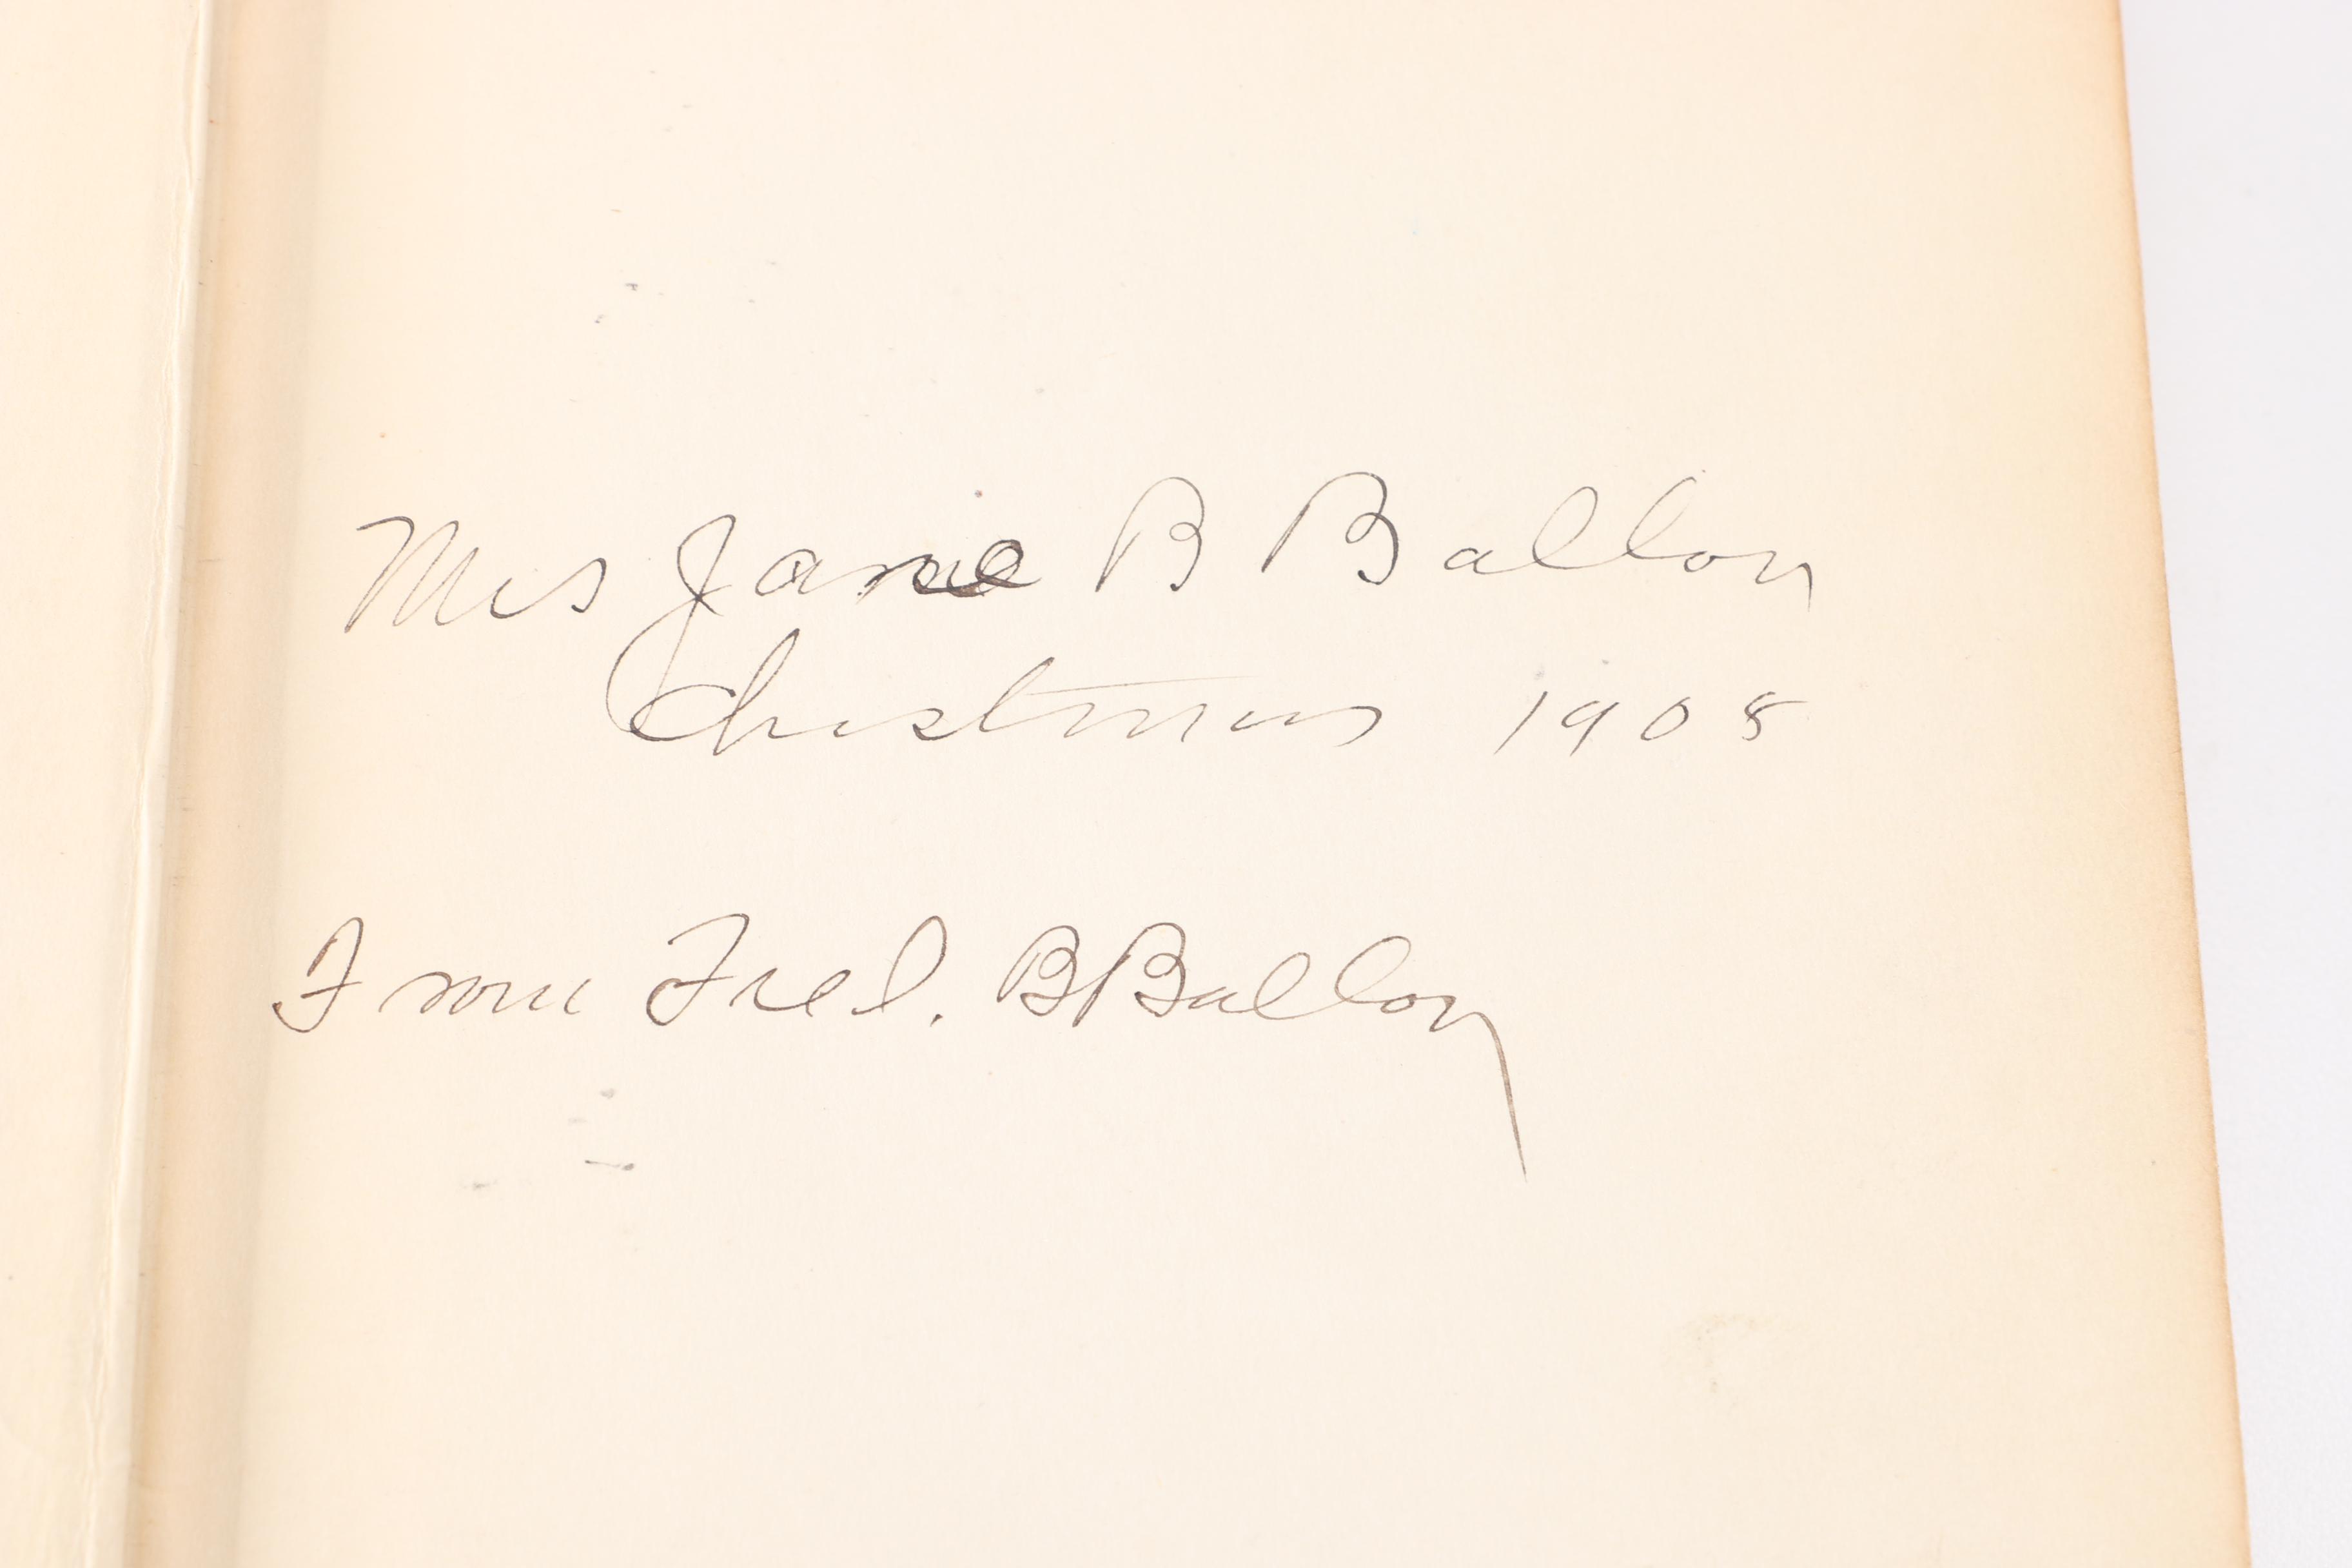 Mrs Jane B Ballou
Christmas 1908
From Fred. B Ballou